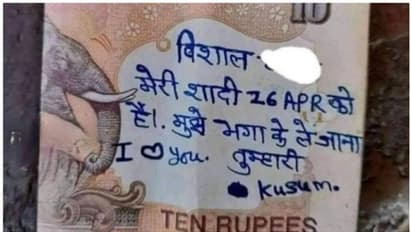 10
विशाल
मेरी शादी 26 APR को
है!. मुझे भगा के ले जाना
I ♡ You. तुम्हारी
Kusum.
TEN RUPEES